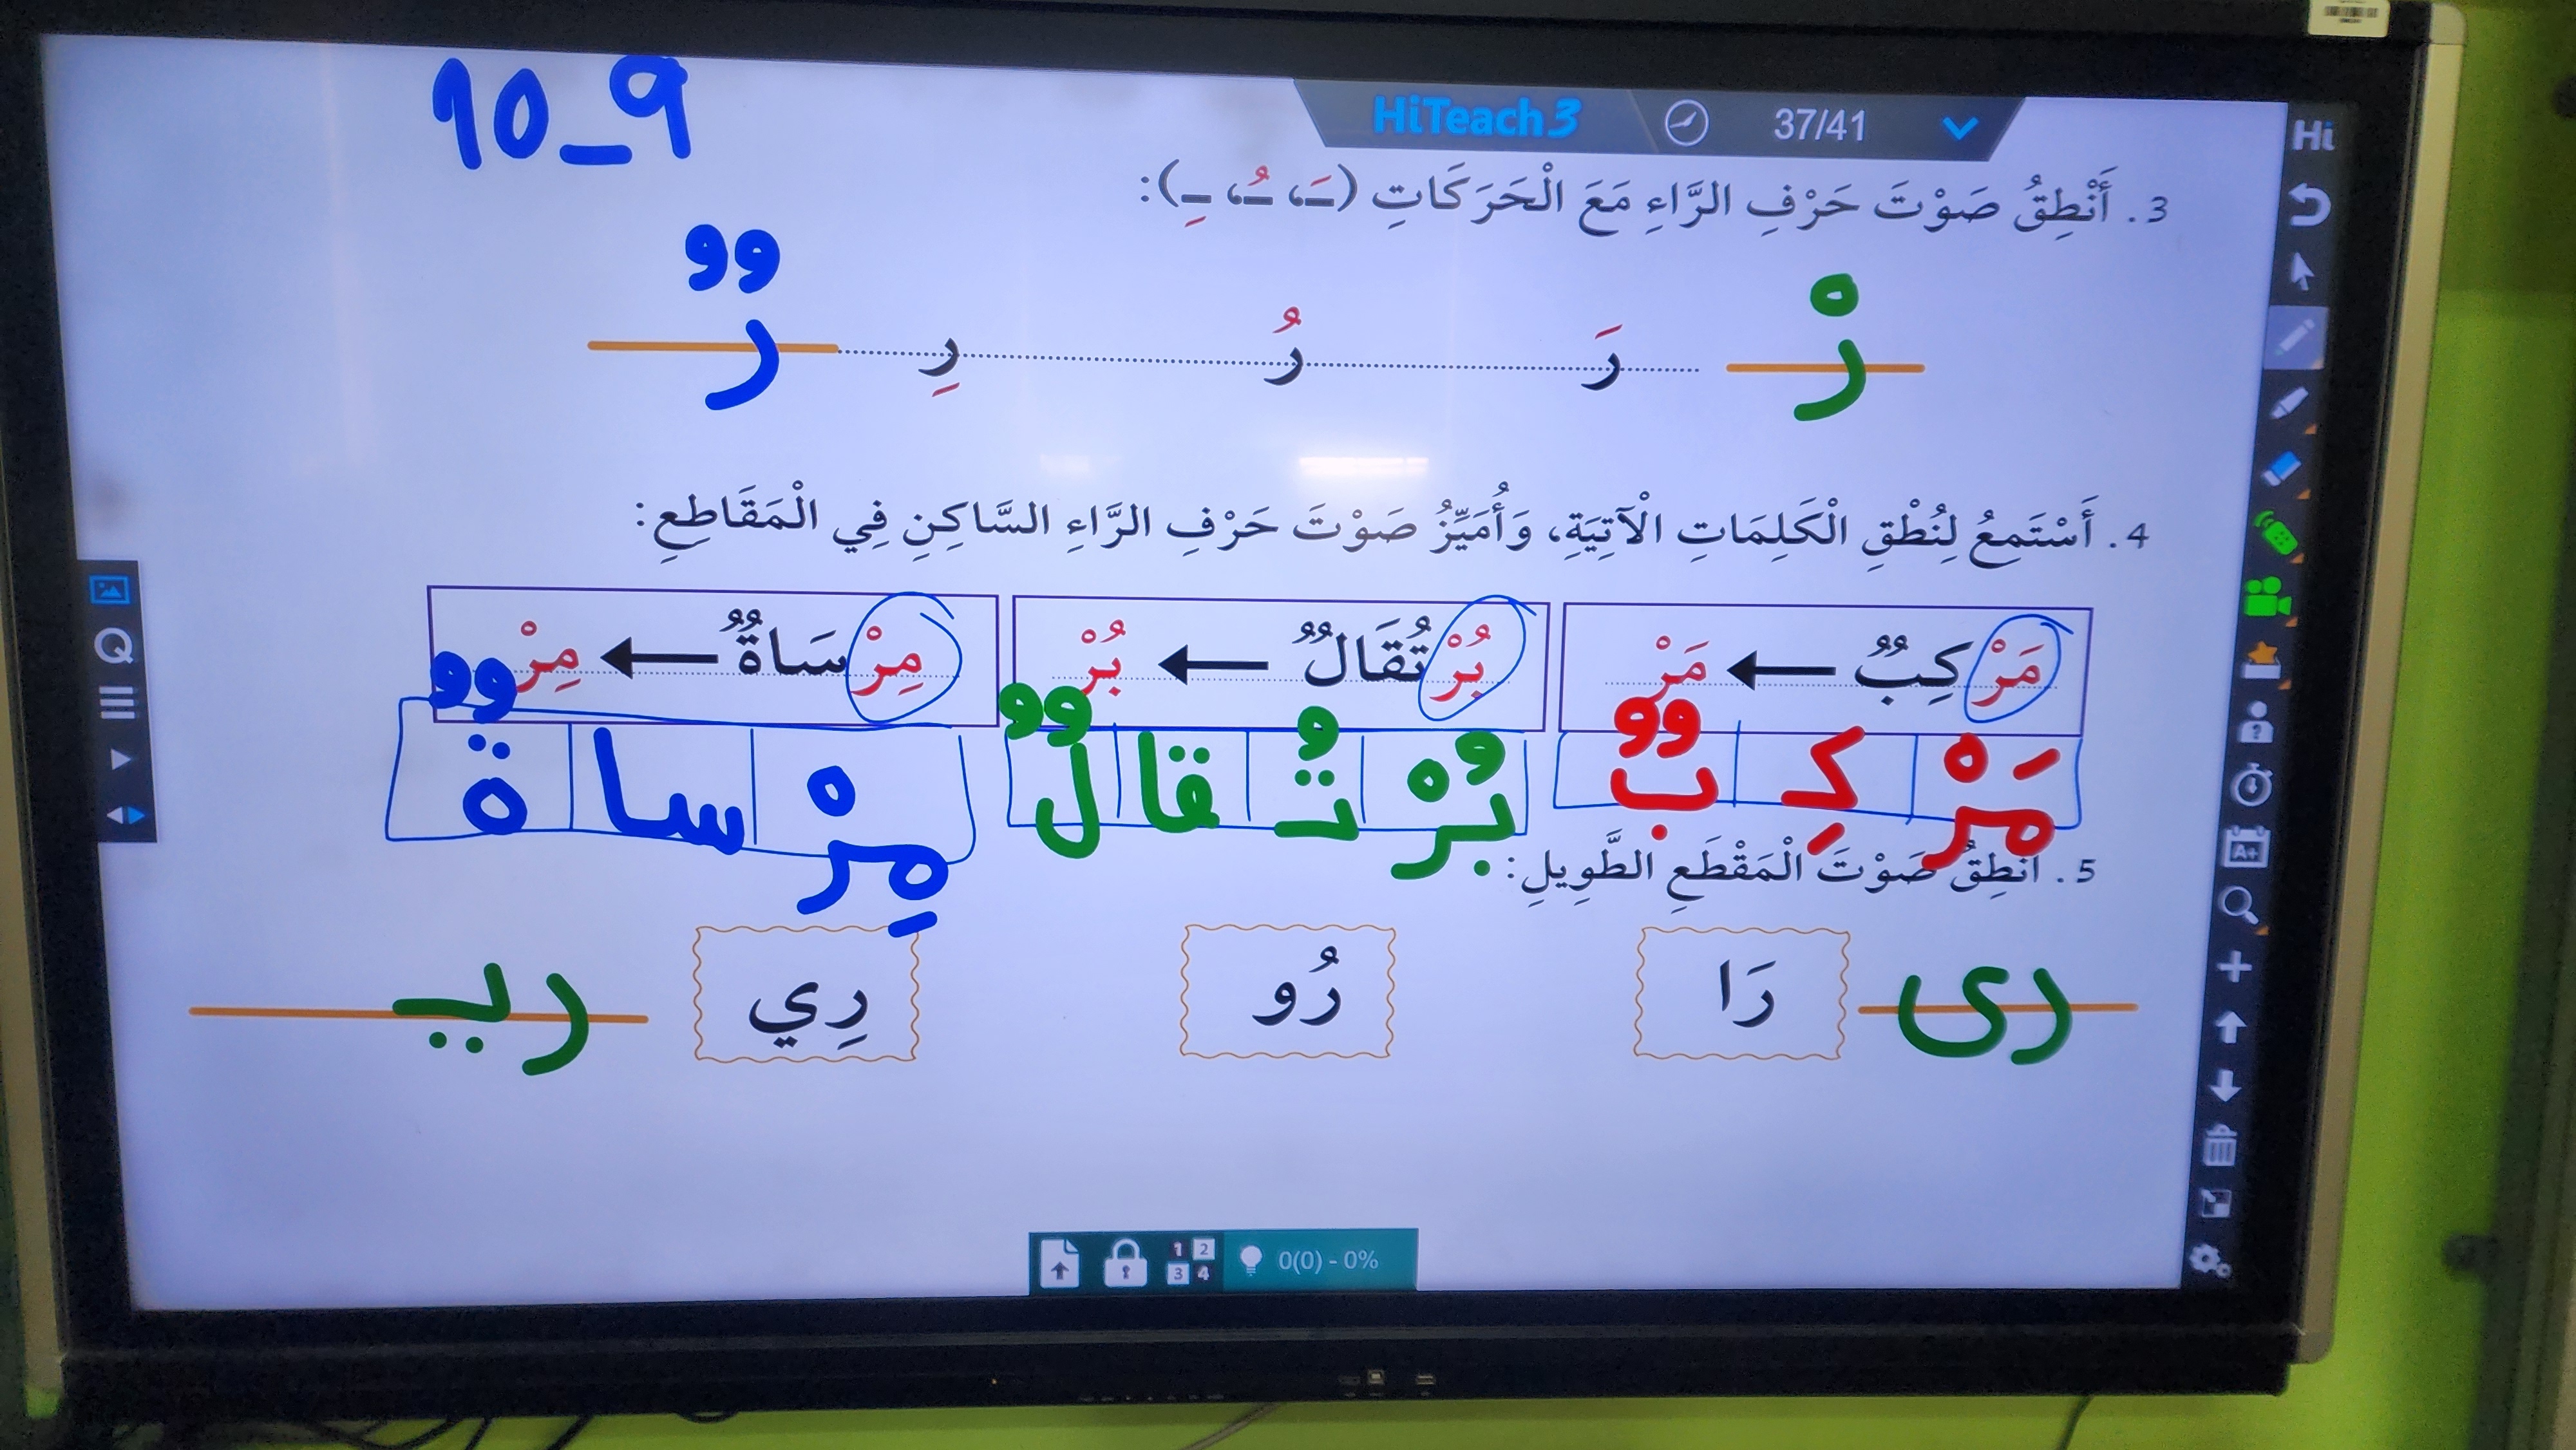 10_9
HiTeach3 37/41
Hi
3. أَنْطِقُ صَوْتَ حَرْفِ الرَّاءِ مَعَ الْحَرَكَاتِ (ــَـ، ــُـ، ــِـ):
رْ رَ رُ رِ رٌ
4. أَسْتَمِعُ لِنُطْقِ الْكَلِمَاتِ الْآتِيَةِ، وَأُمَيِّزُ صَوْتَ حَرْفِ الرَّاءِ السَّاكِنِ فِي الْمَقَاطِعِ:
مَرْكِبٌ ← مَرْ بُرْتُقَالٌ ← بُرْ مِرْسَاةٌ ← مِرْ
مَرْ كِـ بٌ بُرْ تُـ قا لٌ مِرْ سا ةٌ
5. أَنْطِقُ صَوْتَ الْمَقْطَعِ الطَّوِيلِ:
رى رَا رُو رِي ريـ
A+
1 2 3 4 0(0) - 0%